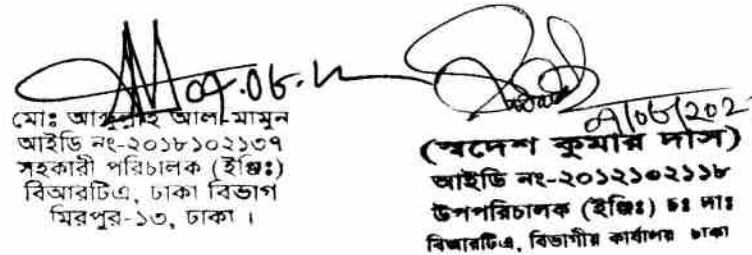 মোঃ আব্দুল্লাহ আল-মামুন
আইডি নং-২০১৮১০২১৩৭
সহকারী পরিচালক (ইঞ্জিঃ)
বিআরটিএ, ঢাকা বিভাগ
মিরপুর-১৩, ঢাকা ।
(স্বদেশ কুমার দাস)
আইডি নং-২০১২১০২১১৮
উপপরিচালক (ইঞ্জিঃ) চঃ দাঃ
বিআরটিএ, বিভাগীয় কার্যালয় ঢাকা